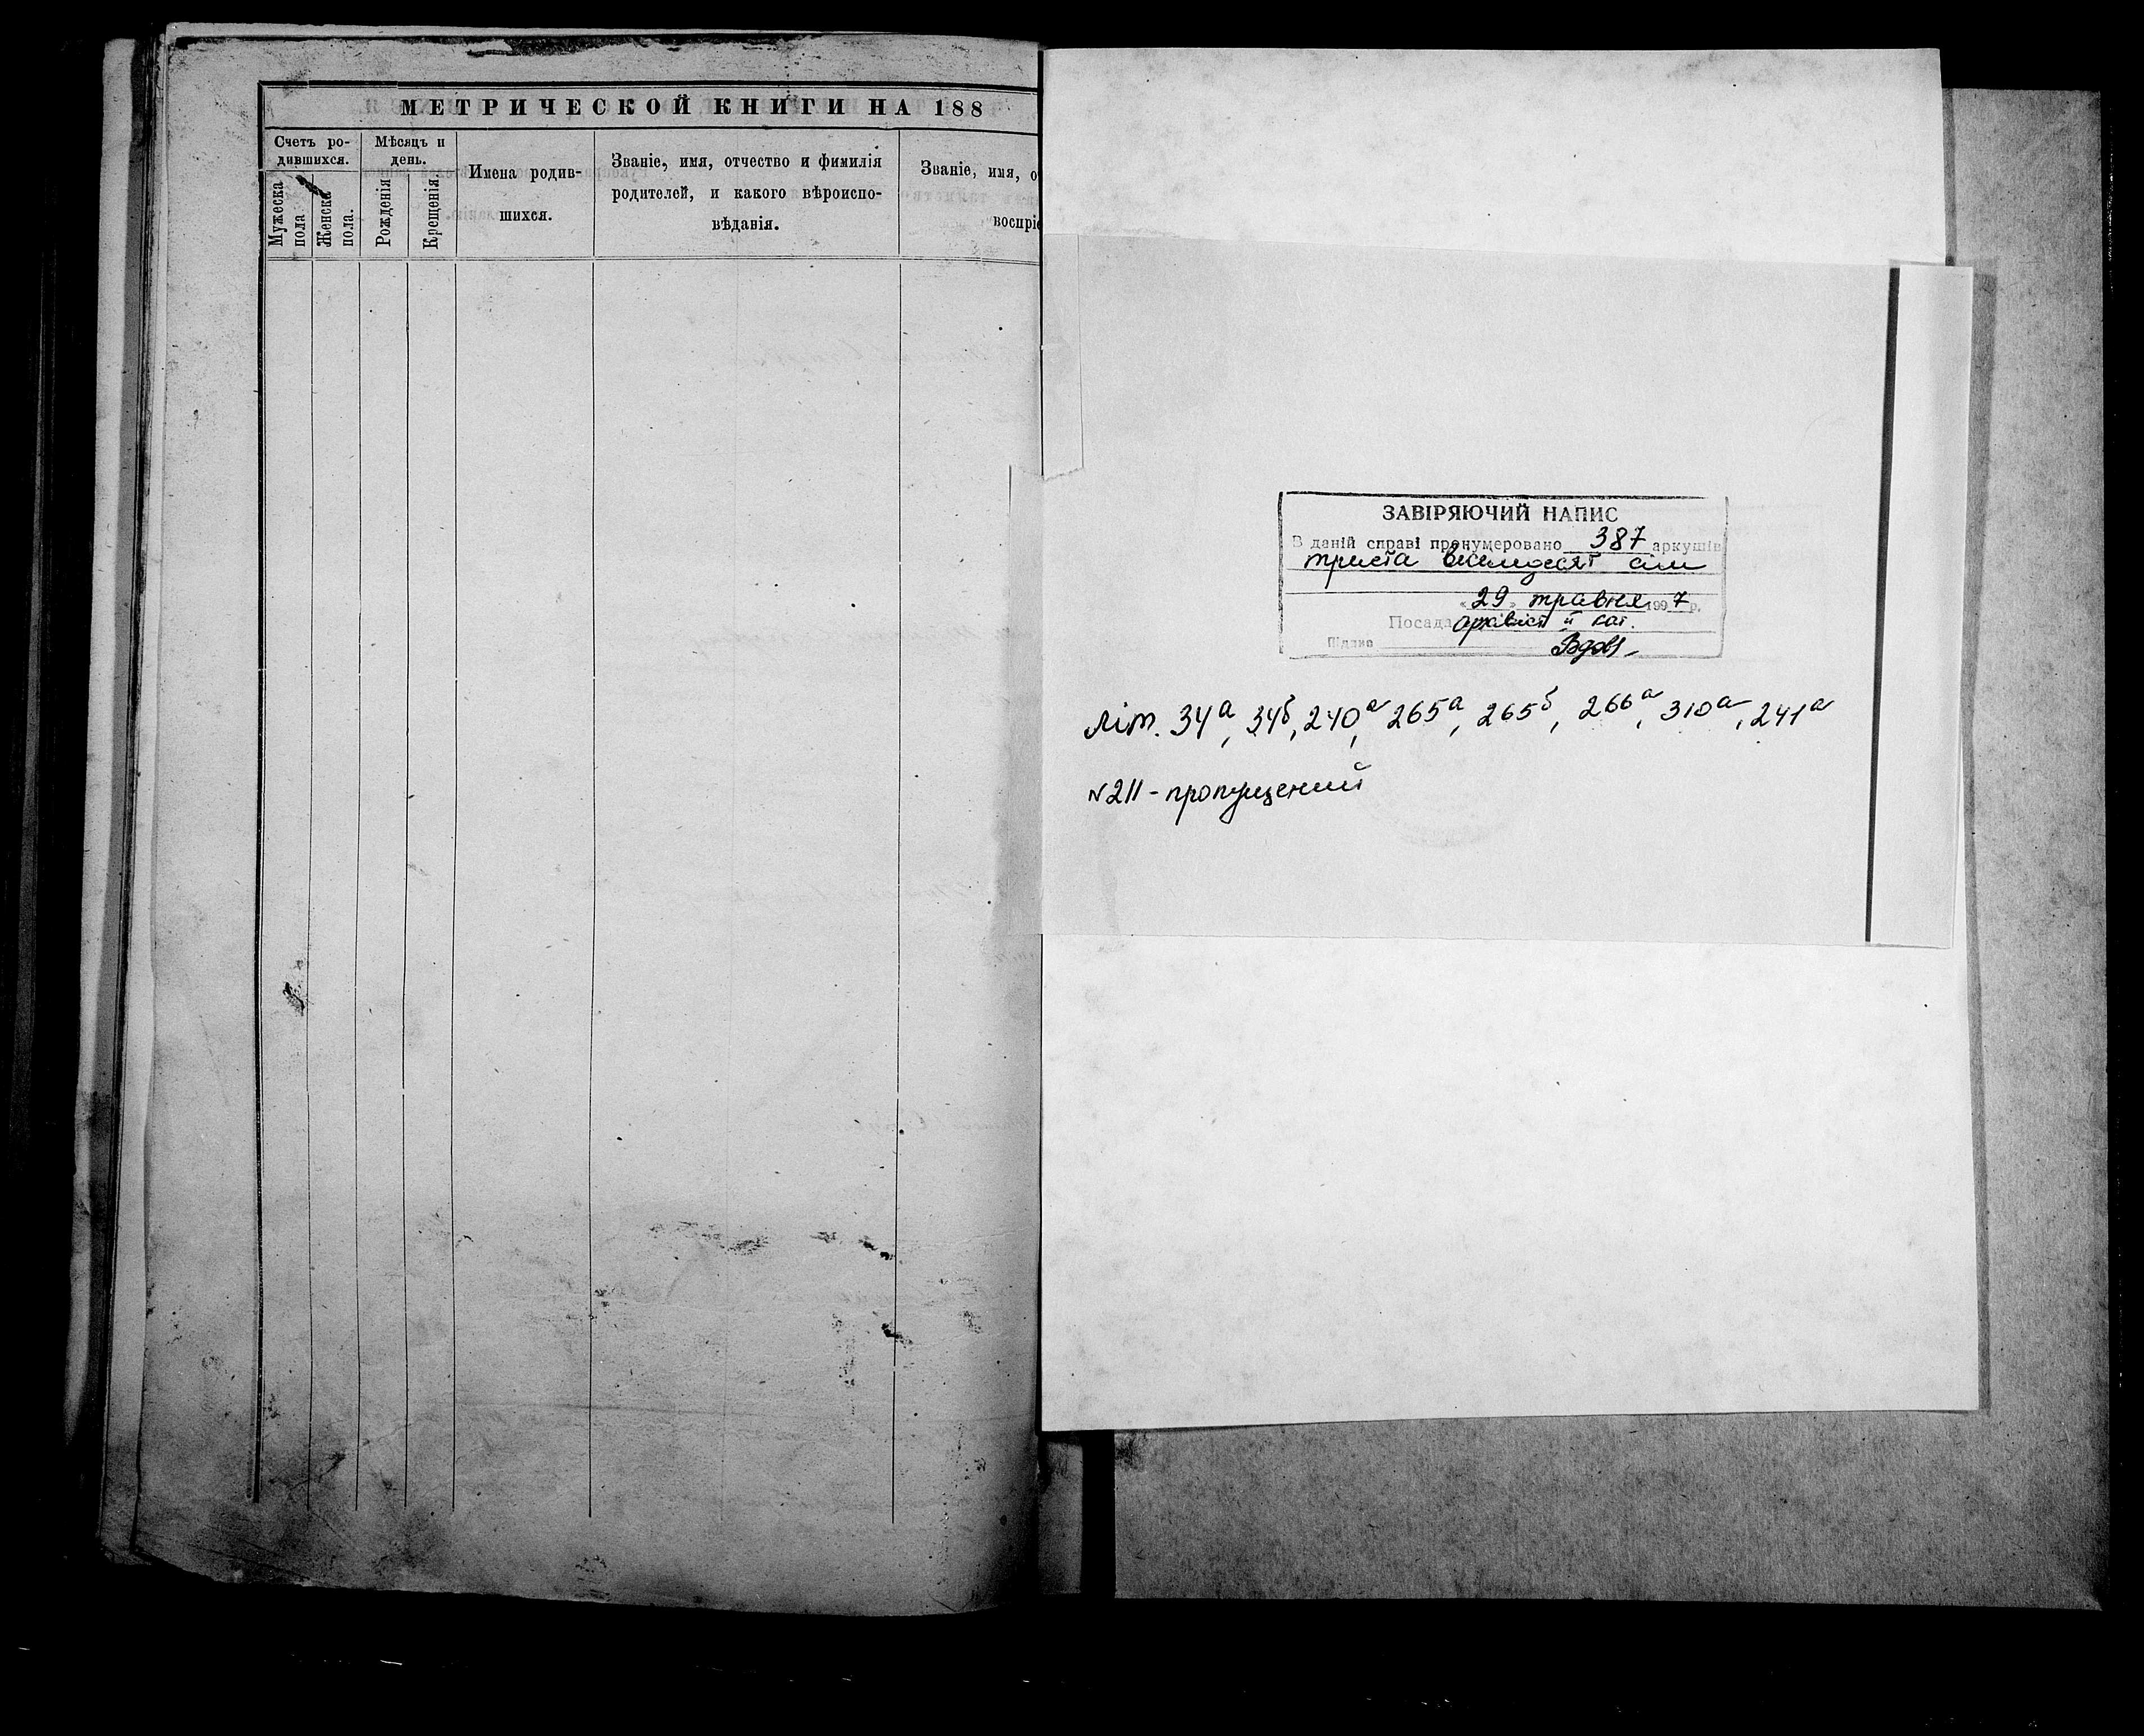 МЕТРИЧЕСКОЙ КНИГИ НА 188
Счетъ ро-
дившихся.
Мужеска
пола
Женска
пола.
Мѣсяцъ и
день.
Рожденія
Крещенія.
Имена родив-
шихся.
Званіе, имя, отчество и фимилія
родителей, и какого вѣроиспо-
вѣданія.
Званіе, имя, о
воспріе
ЗАВІРЯЮЧИЙ НАПИС
В даній справі пронумеровано 387 аркушів
триста вісімдесят сім
«29» травня 1997 р.
Посада архівіст II кат.
Підпис
Літ. 34а, 34б, 240а, 265а, 265б, 266а, 310а, 241а
№211 - пропущений